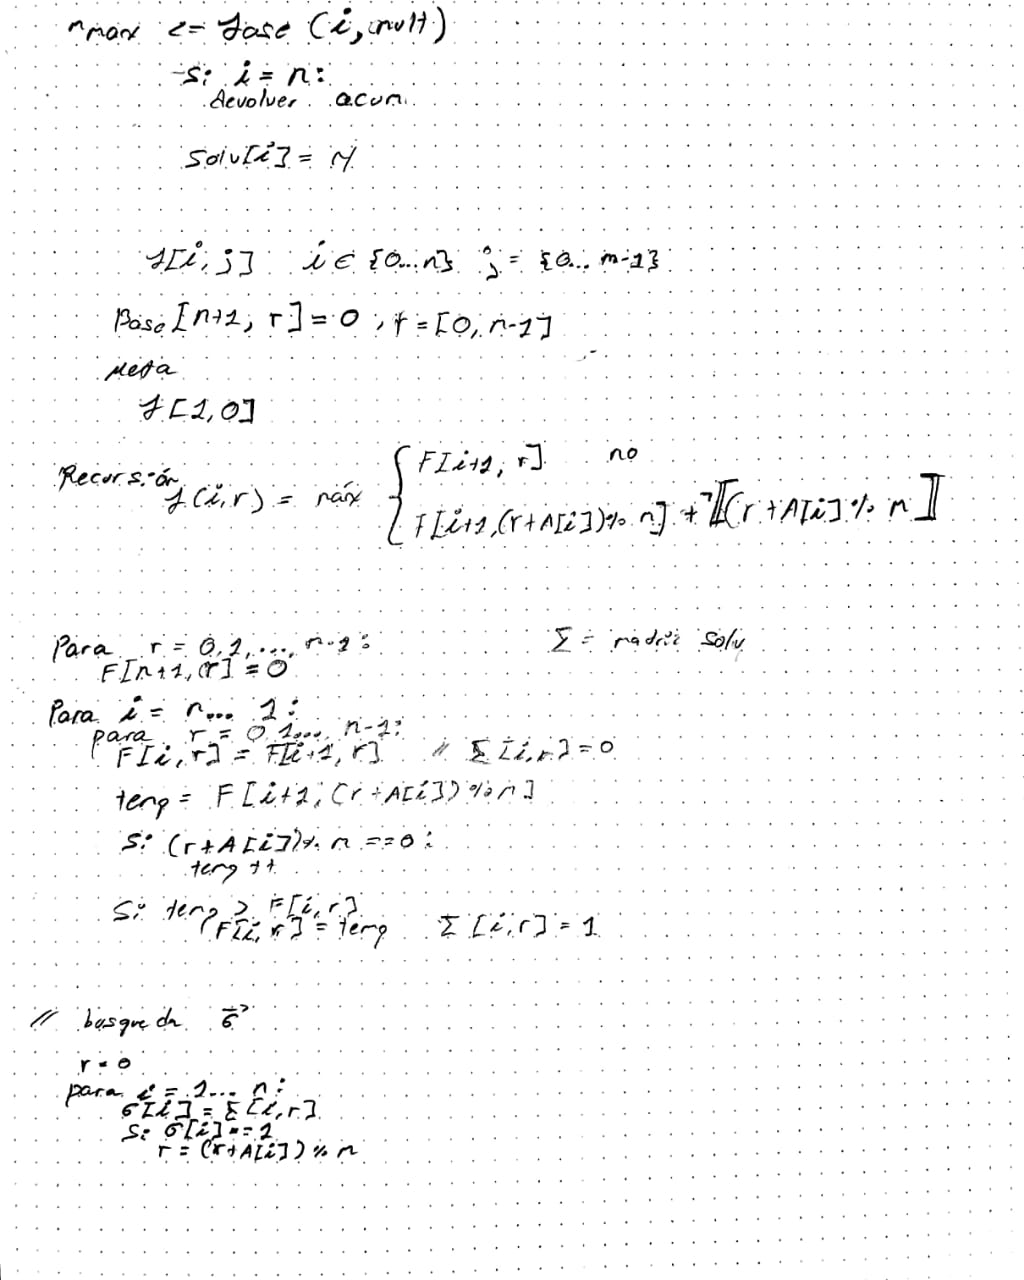 nmax <= fase (i, null)
Si i = n:
devolver acum.
Solu[i] = N
f[i, j] i ∈ {0...n} j = {0... m-1}
Base [n+1, r] = 0, r = [0, n-1]
Meta
f[1,0]
Recursión
f(i,r) = máx { F[i+1, r] no
F[i+1, (r+A[i])% n] + [[(r+A[i] % n]]
Para r = 0,1,..., n-1: Σ = matriz solu
F[n+1, r] = 0
Para i = n... 1:
para r = 0 1... n-1:
F[i,r] = F[i+1, r] // Σ[i,r] = 0
temp = F[i+1, (r+A[i])%n]
Si (r+A[i])% n == 0:
temp ++
Si temp > F[i,r]
F[i, r] = temp Σ[i,r] = 1
// busqueda σ
r = 0
para i = 1... n:
σ[i] = Σ[i,r]
Si σ[i] == 1
r = (r+A[i]) % n